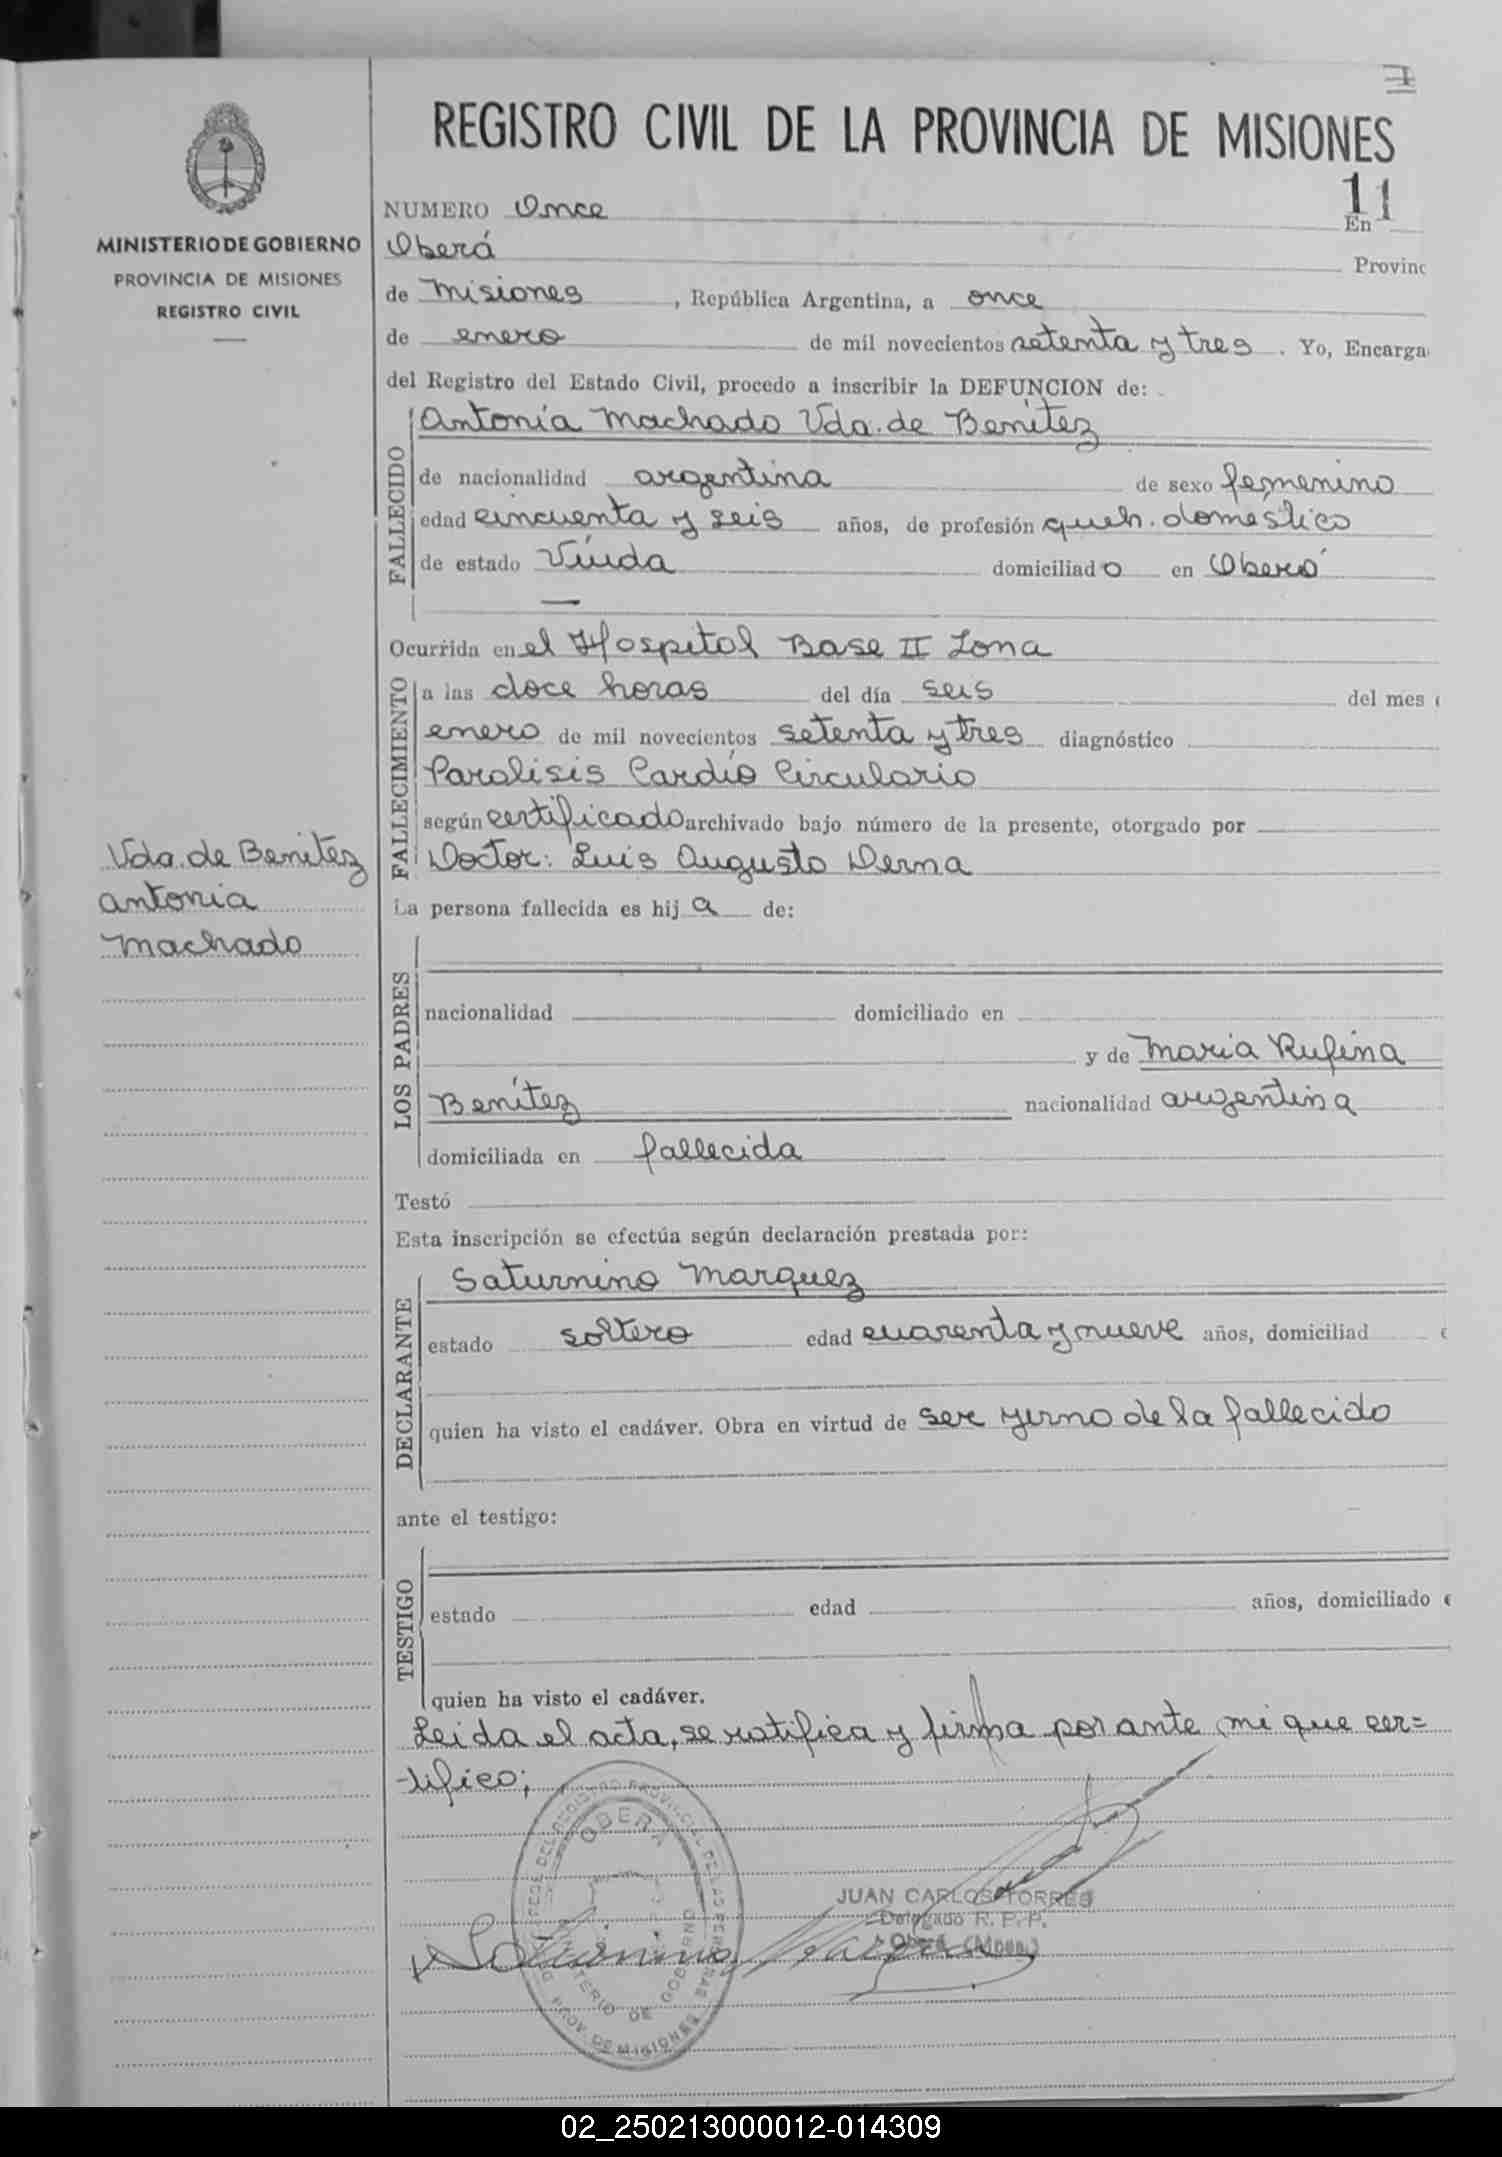 REGISTRO CIVIL DE LA PROVINCIA DE MISIONES
MINISTERIO DE GOBIERNO
PROVINCIA DE MISIONES
REGISTRO CIVIL
NUMERO Once 11
En
Oberá Provinc
de Misiones, República Argentina, a once
de enero de mil novecientos setenta y tres. Yo, Encarga
del Registro del Estado Civil, procedo a inscribir la DEFUNCION de:
FALLECIDO
Antonia Machado Vda. de Benítez
de nacionalidad argentina de sexo femenino
edad cincuenta y seis años, de profesión queh. domestico
de estado Viuda domiciliado en Oberá
Ocurrida en el Hospital Base II Zona
FALLECIMIENTO
a las doce horas del día seis del mes
enero de mil novecientos setenta y tres diagnóstico
Paralisis Cardio Circulario
según certificado archivado bajo número de la presente, otorgado por
Doctor: Luis Augusto Derna
Vda. de Benitez
antonia
machado
La persona fallecida es hij a de:
LOS PADRES
nacionalidad domiciliado en
y de Maria Rufina
Benítez nacionalidad argentina
domiciliada en fallecida
Testó
Esta inscripción se efectúa según declaración prestada por:
DECLARANTE
Saturnino Marquez
estado soltero edad cuarenta y nueve años, domiciliad
quien ha visto el cadáver. Obra en virtud de ser yerno de la fallecido
ante el testigo:
TESTIGO
estado edad años, domiciliado
quien ha visto el cadáver.
Leida el acta, se ratifica y firma por ante mi que cer=
-tifico;
OBERA
MINISTERIO DE GOBIERNO
PROV. DE MISIONES
JUAN CARLOS TORRES
Delegado R. P. P.
Oberá (Mnes.)
Saturnino Marquez
02_250213000012-014309